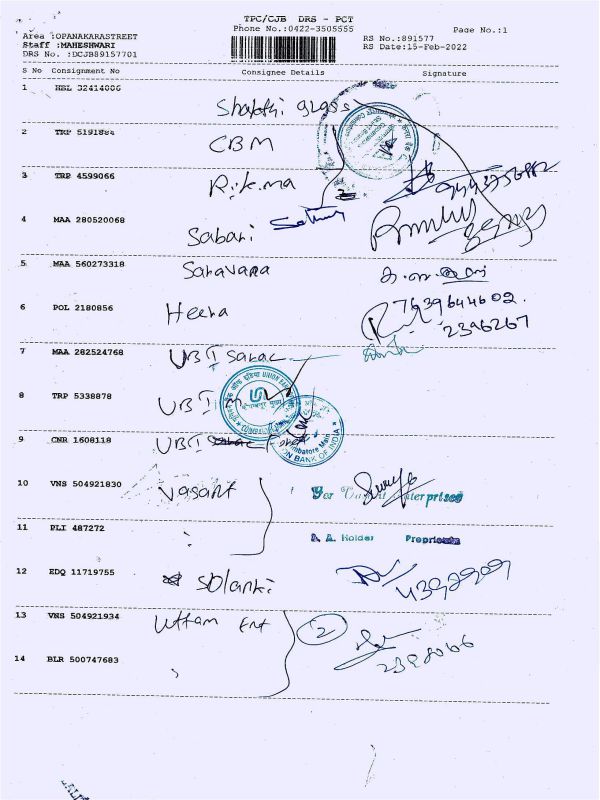 TPC/CJB DRS - PCT
Phone No.:0422-3505555
Page No.:1
Area :OPANAKARASTREET
Staff :MAHESHWARI
DRS No. :DCJB89157701
RS No.:891577
RS Date:15-Feb-2022
S No Consignment No Consignee Details Signature
1 HSL 32414006
Shakthi glass
2 TRP 5191884 CBM
3 TRP 4599066 Rikma
9443756982
4 MAA 280520068 Sabari
5 MAA 560273318 Saravana
6 POL 2180856 Heera 7639644602.
2396267
7 MAA 282524768 UBI Sarac
UNION BANK
8 TRP 5338878 UBI m
Coimbatore Main
UNION BANK OF INDIA
9 CNR 1608118 UBI Forex
10 VNS 504921830 Vasant
For Enterprises
11 PLI 487272 "
A. A. Holder Proprietor
12 EDQ 11719755 Solanki
4392909
13 VNS 504921934 Uttam Ent 2
2398066
14 BLR 500747683 "